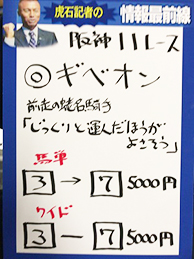 虎石記者の
情報最前線
阪神11レース
◎ギベオン
前走の蛯名騎手
「じっくりと運んだほうが
よさそう」
馬単
3→7 5000円
ワイド
3－7 5000円